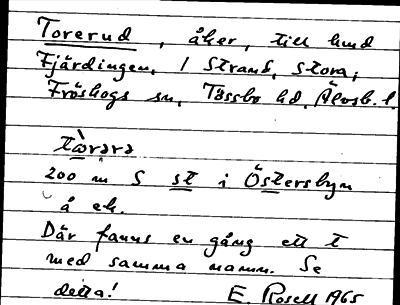 Torerud, åker, till hmd
Fjärdingen, i Strand, stora,
Fröskogs sn, Tössbo hd, Älvsb. l.
tὼrərə
200 m S st i Östersbyn
å ek.
Där fanns en gång ett t
med samma namn. Se
detta! E. Rosell 1965